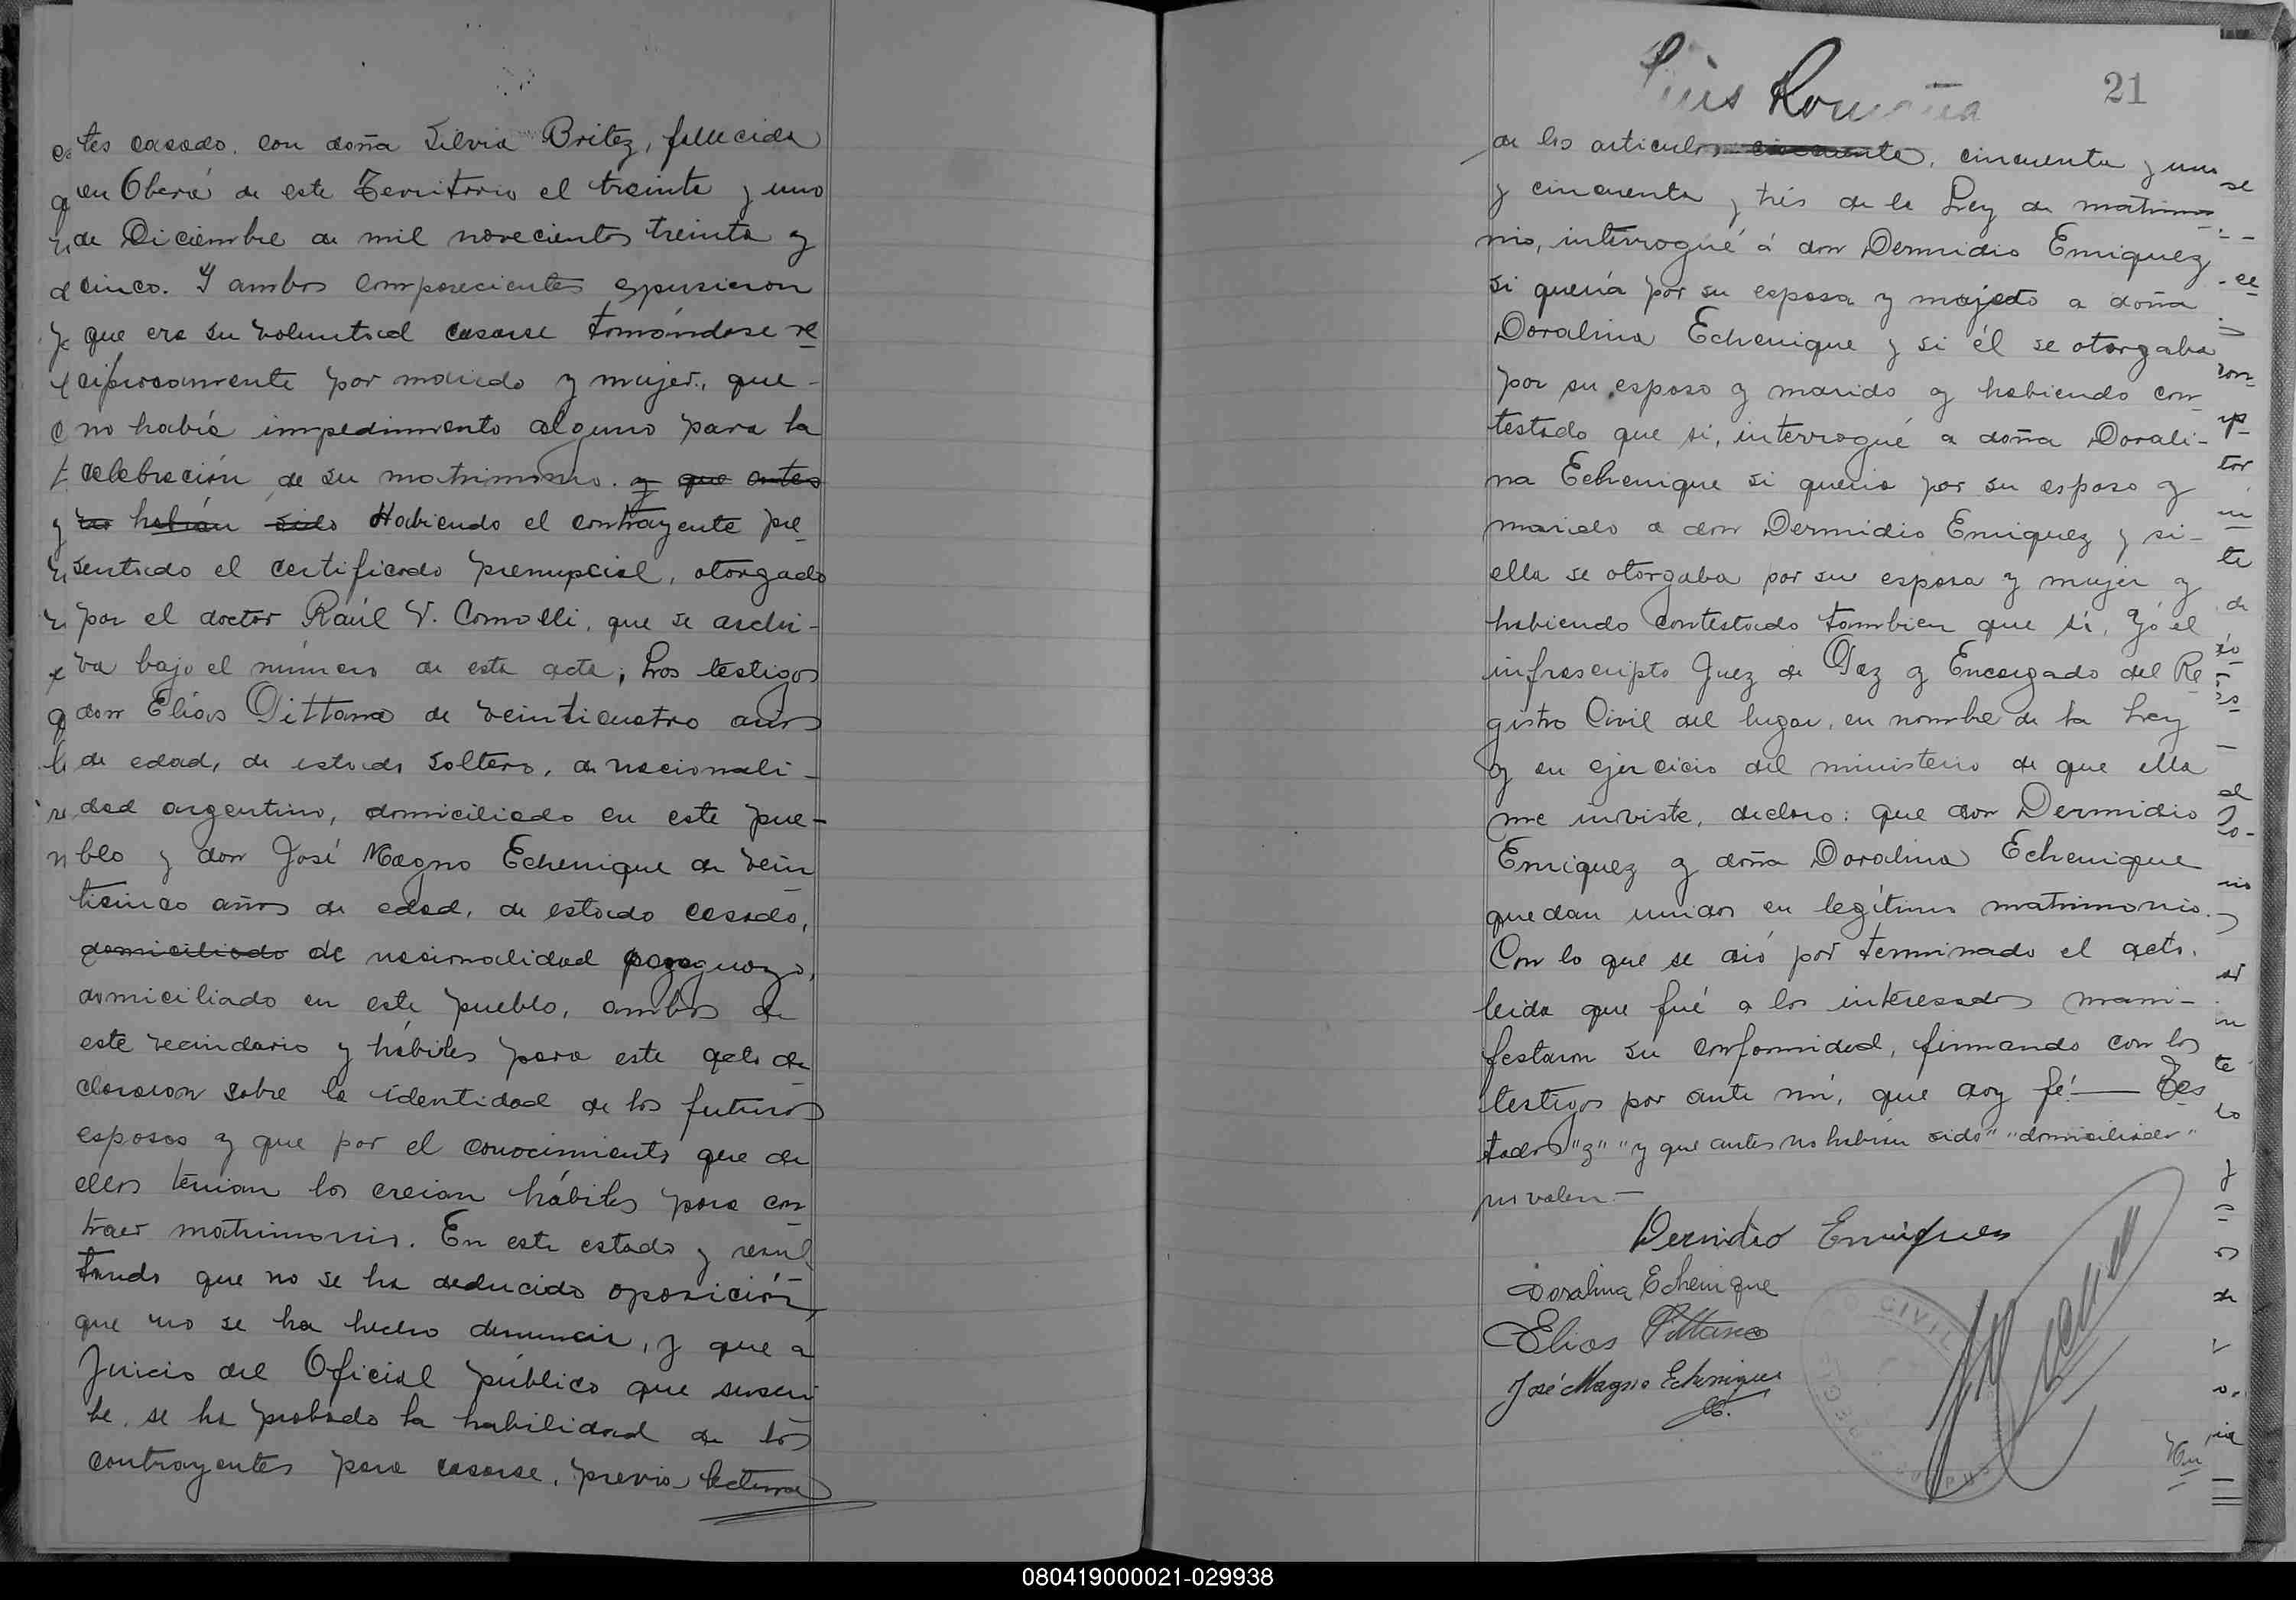 tes casado con doña Silvia Britez, fallecida
en Oberá de este Territorio el treinta y uno
de Diciembre de mil novecientos treinta y
cinco. Y ambos comparecientes expusieron
que era su voluntad casarse tomándose re
ciprocamente por marido y mujer, que
no había impedimento alguno para la
celebración de su matrimonio. y que antes
no habian sido Habiendo el contrayente pre
sentado el certificado prenupcial, otorgado
por el doctor Raúl V. Comolli, que se archi-
va bajo el número de esta acta; Los testigos
don Elías Pittana de veinticuatro años
de edad, de estado soltero, de nacionali-
dad argentino, domiciliado en este pue-
blo y don José Magno Echenique de vein
ticinco años de edad, de estado casado,
domiciliado de nacionalidad paraguayo,
domiciliado en este pueblo, ambos de
este vecindario y hábiles para este acto de
clararon sobre la identidad de los futuros
esposos y que por el conocimiento que de
ellos tenian los creian hábiles para con
traer matrimonio. En este estado y resul
tando que no se ha deducido oposición,
que no se ha hecho denuncia, y que a
Juicio del Oficial público que suscri
be, se ha probado la habilidad de los
contrayentes para casarse, previa lectura
21
Luis Romaña
de los articulos cincuenta, cincuenta y uno
y cincuenta y trés de la Ley de matrimo
nio, interrogué á don Dermidio Enriquez
si quería por su esposa y mujer a doña
Doralina Echenique y si él se otorgaba
por su esposo y marido y habiendo con
testado que si, interrogué a doña Dorali-
na Echenique si queria por su esposo y
marido a don Dermidio Enriquez y si-
ella se otorgaba por su esposa y mujer y
habiendo contestado tambien que si, Yó el
infrascripto Juez de Paz y Encargado del Re
gistro Civil del lugar, en nombre de la Ley
y en ejercicio del ministerio de que ella
me inviste, declaro: que don Dermidio
Enriquez y doña Doralina Echenique
quedan unidos en legítimo matrimonio.
Con lo que se dió por terminado el acto.
leida que fué a los interesados mani-
festaron su conformidad, firmando con los
testigos por ante mí, que doy fé. — Tes
tados "y" "y que antes no habian sido" "domiciliado"
no valen.—
Dermidio Enriquez
Doralina Echenique
Elias Pittana
José Magno Echenique
CIVIL
080419000021-029938